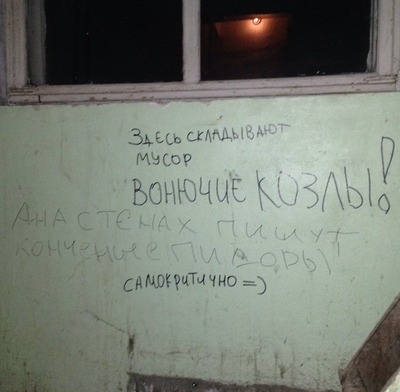 ЗДЕСЬ СКЛАДЫВАЮТ
МУСОР
ВОНЮЧИЕ КОЗЛЫ!
А НА СТЕНАХ ПИШУТ
КОНЧЕНЫЕ ПИДОРЫ!
САМОКРИТИЧНО =)